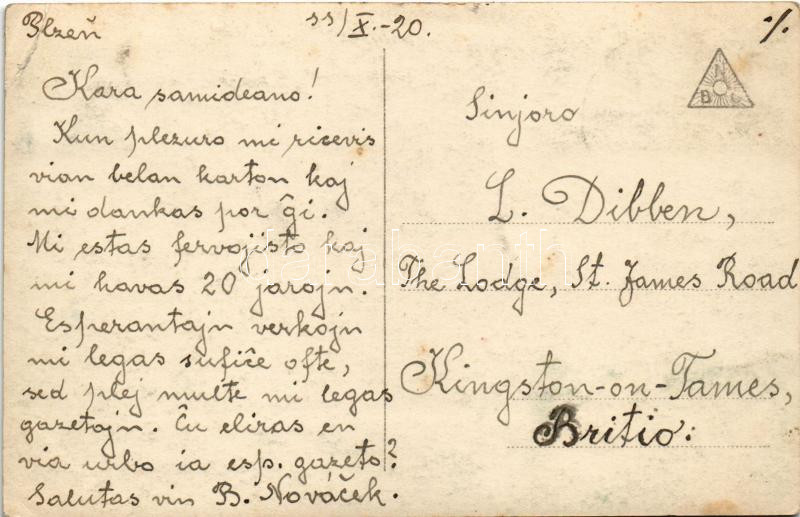 Plzeň
11/X.-20.
·/.
Kara samideano!
Kun plezuro mi ricevis
vian belan karton kaj
mi dankas por ĝi.
Mi estas fervojisto kaj
mi havas 20 jarojn.
Esperantajn verkojn
mi legas sufiĉe ofte,
sed plej multe mi legas
gazetojn. Ĉu eliras en
via urbo ia esp. gazeto?
Salutas vin B. Nováček.
N
B
Sinjoro
L. Dibben,
The Lodge, St. James Road
Kingston-on-Tames,
Britio.